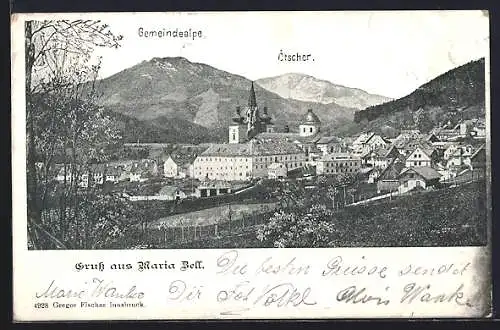 Gemeindealpe.
Ötscher.
Gruß aus Maria Zell. Die besten Grüsse sendet
Marie Wanko Dir Alois Wanko
4928 Gregor Fischer Innsbruck.